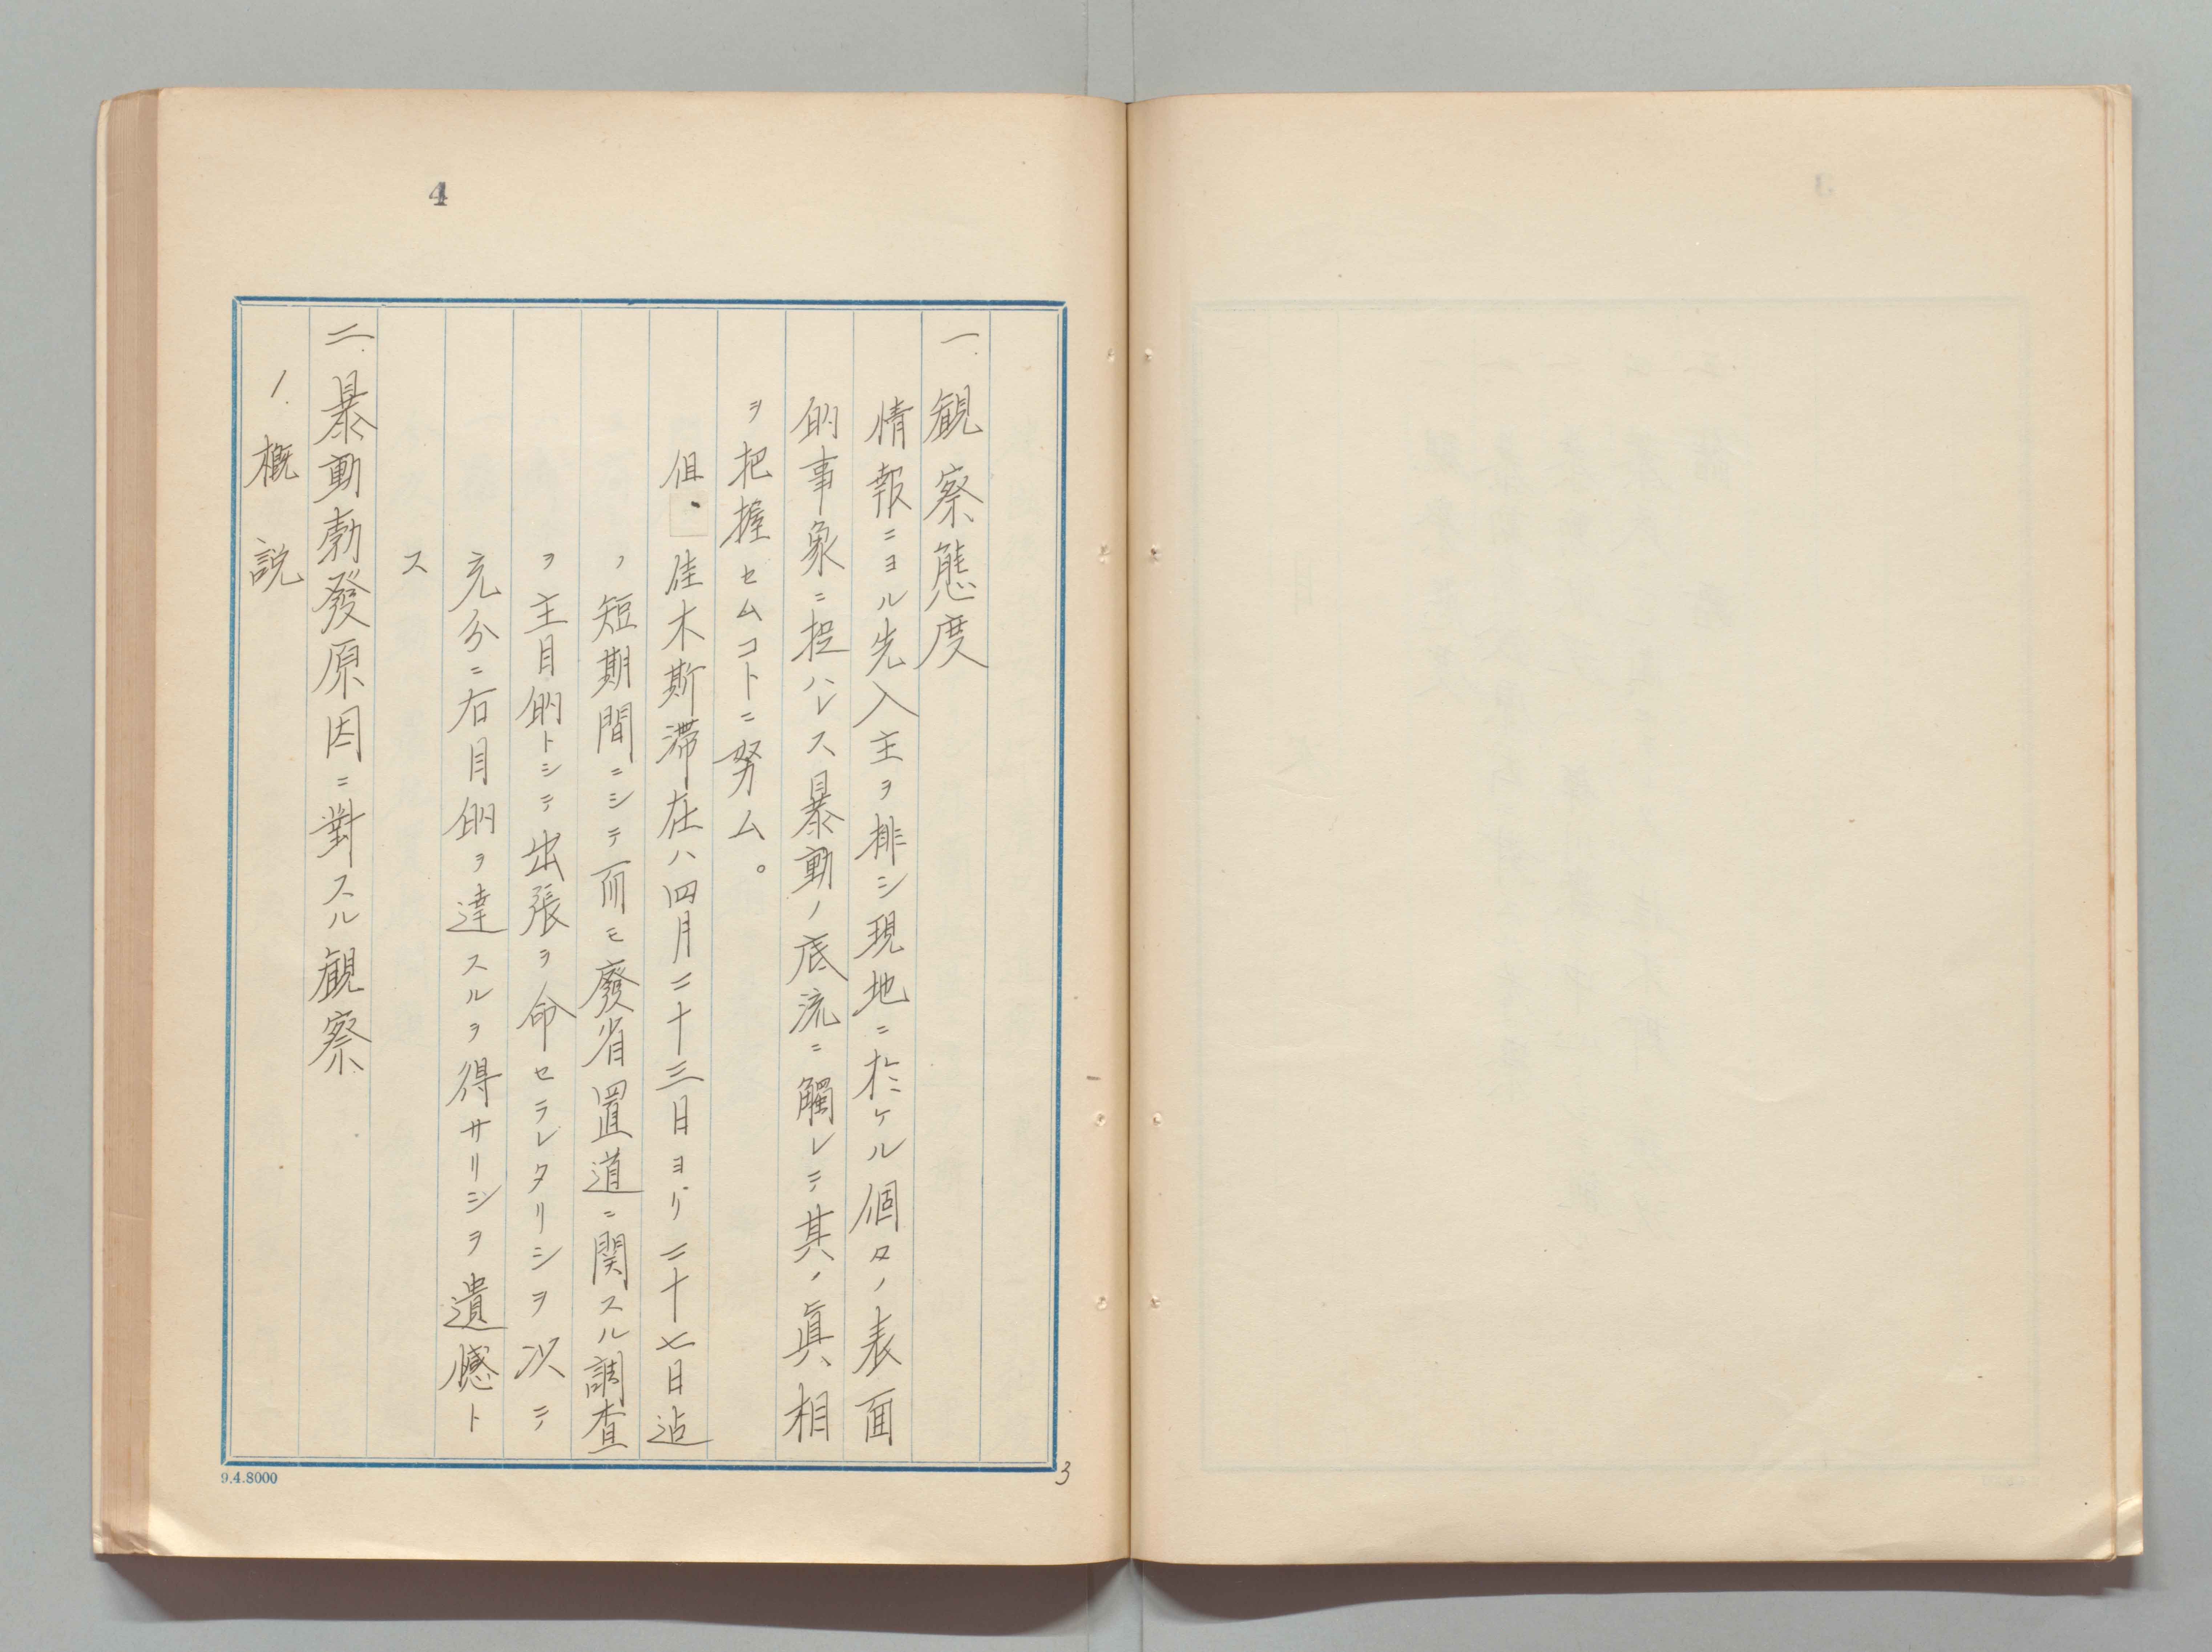 4
一.観察態度
情報ニヨル先入主ヲ排シ現地ニ於ケル個々ノ表面
的事象ニ捉ハレス暴動ノ底流ニ觸レテ其ノ眞相
ヲ把握セムコトニ努ム。
但、佳木斯滞在ハ四月二十三日ヨリ二十七日迠
ノ短期間ニシテ而モ廢省置道ニ関スル調査
ヲ主目的トシテ出張ヲ命セラレタリシヲ以テ
充分ニ右目的ヲ達スルヲ得サリシヲ遺憾ト
ス
二.暴動勃發原因ニ對スル観察
1.概説
3
9.4.8000